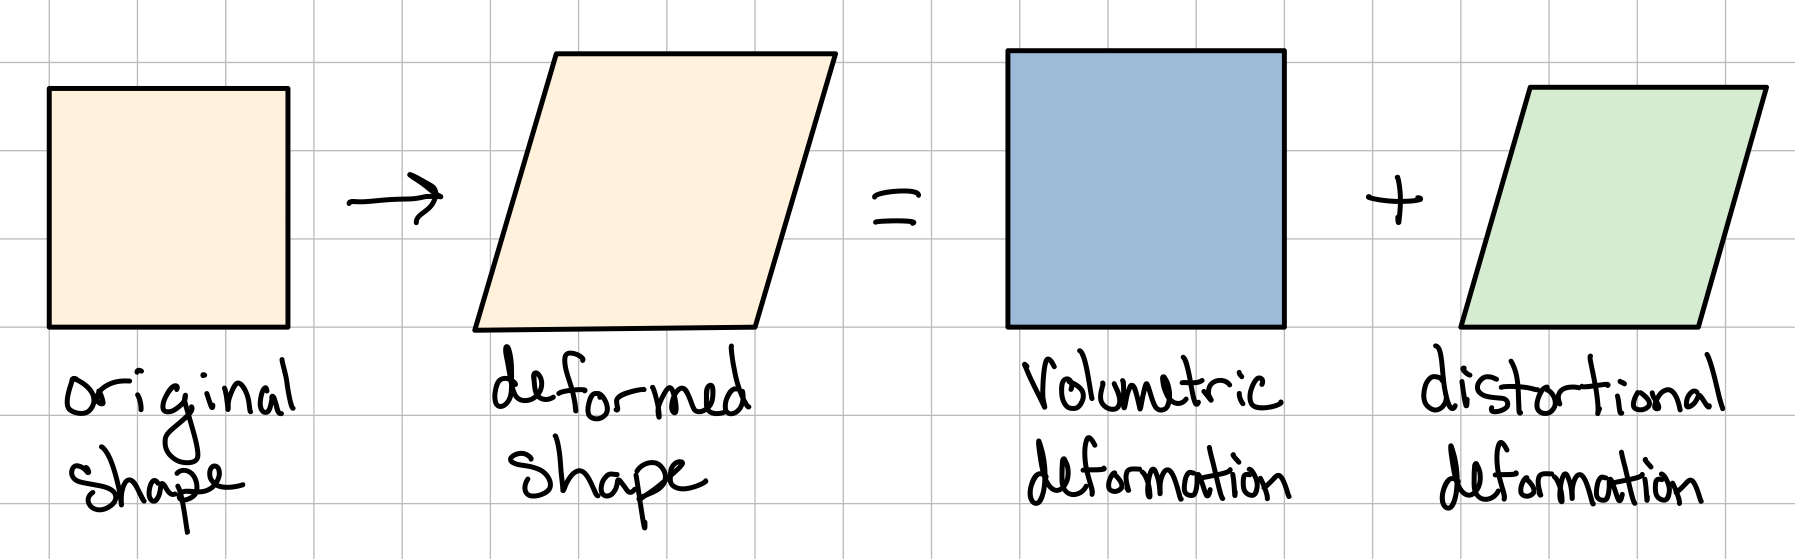 original
shape
deformed
shape
Volumetric
deformation
distortional
deformation